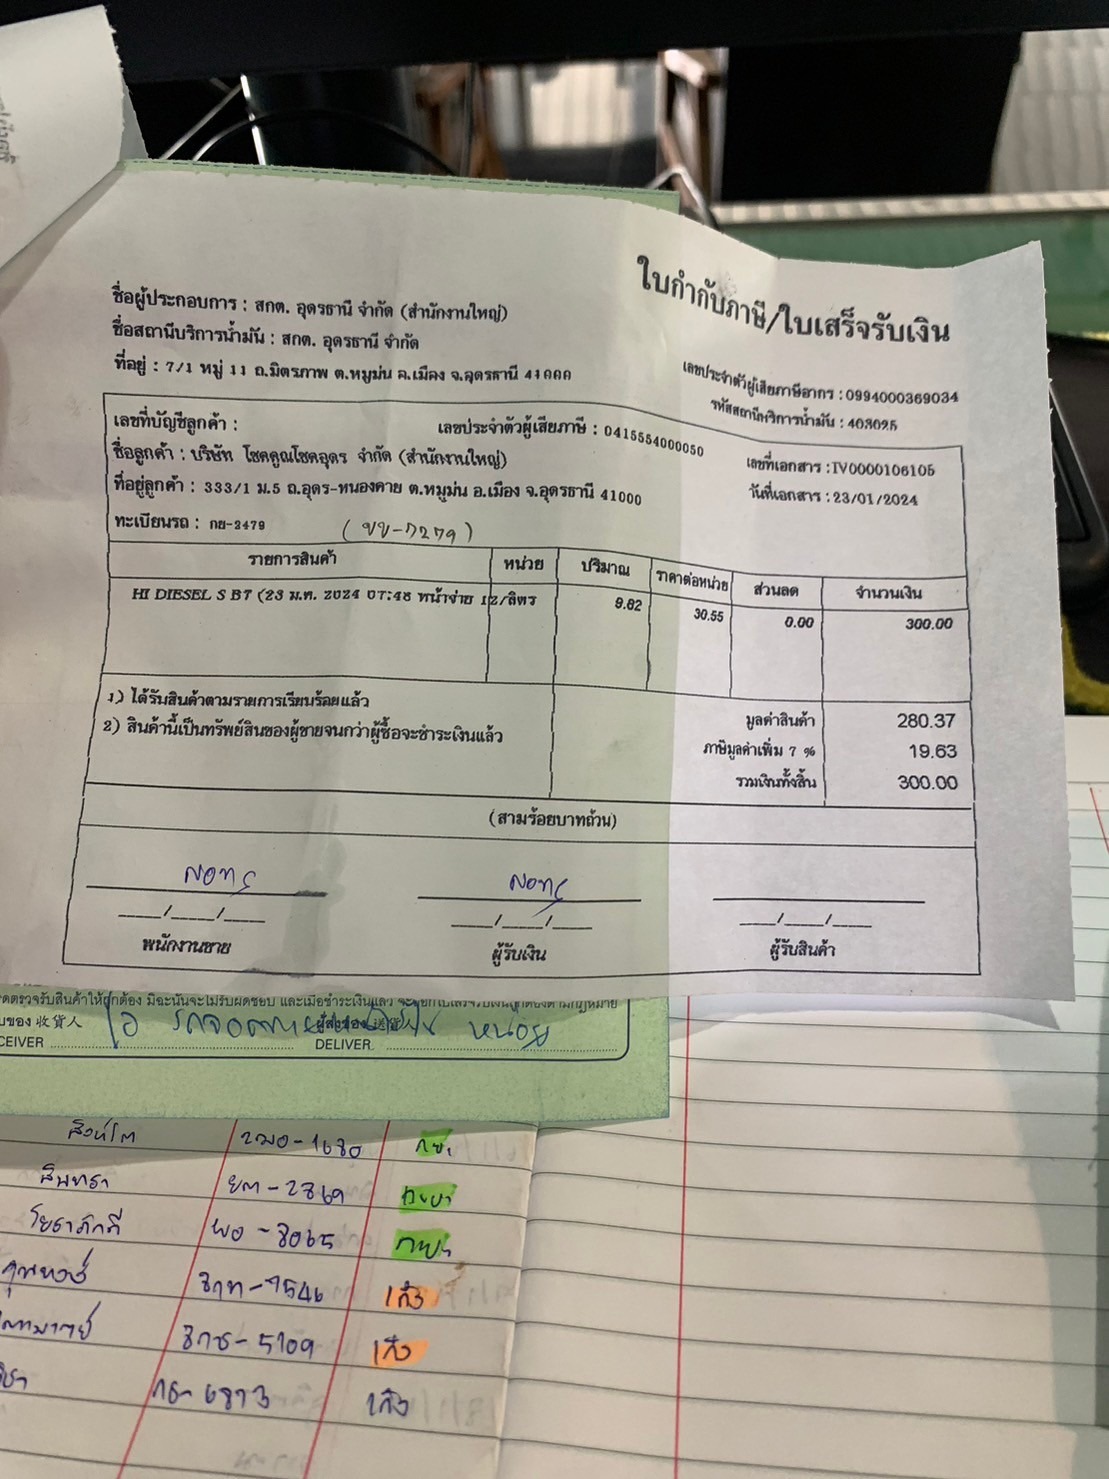 ใบกำกับภาษี/ใบเสร็จรับเงิน
ชื่อผู้ประกอบการ : สกต. อุดรธานี จำกัด (สำนักงานใหญ่)
ชื่อสถานีบริการน้ำมัน : สกต. อุดรธานี จำกัด
ที่อยู่ : 7/1 หมู่ 11 ถ.มิตรภาพ ต.หมูม่น อ.เมือง จ.อุดรธานี 41000
เลขประจำตัวผู้เสียภาษีอากร : 0994000369034
รหัสสถานีบริการน้ำมัน : 403025
เลขที่บัญชีลูกค้า : เลขประจำตัวผู้เสียภาษี : 0415554000050
ชื่อลูกค้า : บริษัท โชคคูณโชคอุดร จำกัด (สำนักงานใหญ่)
เลขที่เอกสาร : IV0000106105
ที่อยู่ลูกค้า : 333/1 ม.5 ถ.อุดร-หนองคาย ต.หมูม่น อ.เมือง จ.อุดรธานี 41000
วันที่เอกสาร : 23/01/2024
ทะเบียนรถ : กย-2479 (ขบ-7279)
รายการสินค้า หน่วย ปริมาณ ราคาต่อหน่วย ส่วนลด จำนวนเงิน
HI DIESEL S B7 (23 ม.ค. 2024 07:48 หน้าจ่าย 12/ลิตร 9.82 30.55 0.00 300.00
1) ได้รับสินค้าตามรายการเรียบร้อยแล้ว
2) สินค้านี้เป็นทรัพย์สินของผู้ขายจนกว่าผู้ซื้อจะชำระเงินแล้ว
มูลค่าสินค้า 280.37
ภาษีมูลค่าเพิ่ม 7 % 19.63
รวมเงินทั้งสิ้น 300.00
(สามร้อยบาทถ้วน)
___/___/___ ___/___/___ ___/___/___
พนักงานขาย ผู้รับเงิน ผู้รับสินค้า
收貨人
CEIVER DELIVER.
หน่อย
สิงห์โต 2ฒอ-1680 กข.
ยต-2869
พอ-8065
ฮาท-7546 เก๋ง
ฮาธ-5109 เก๋ง
กธ-6873 เก๋ง